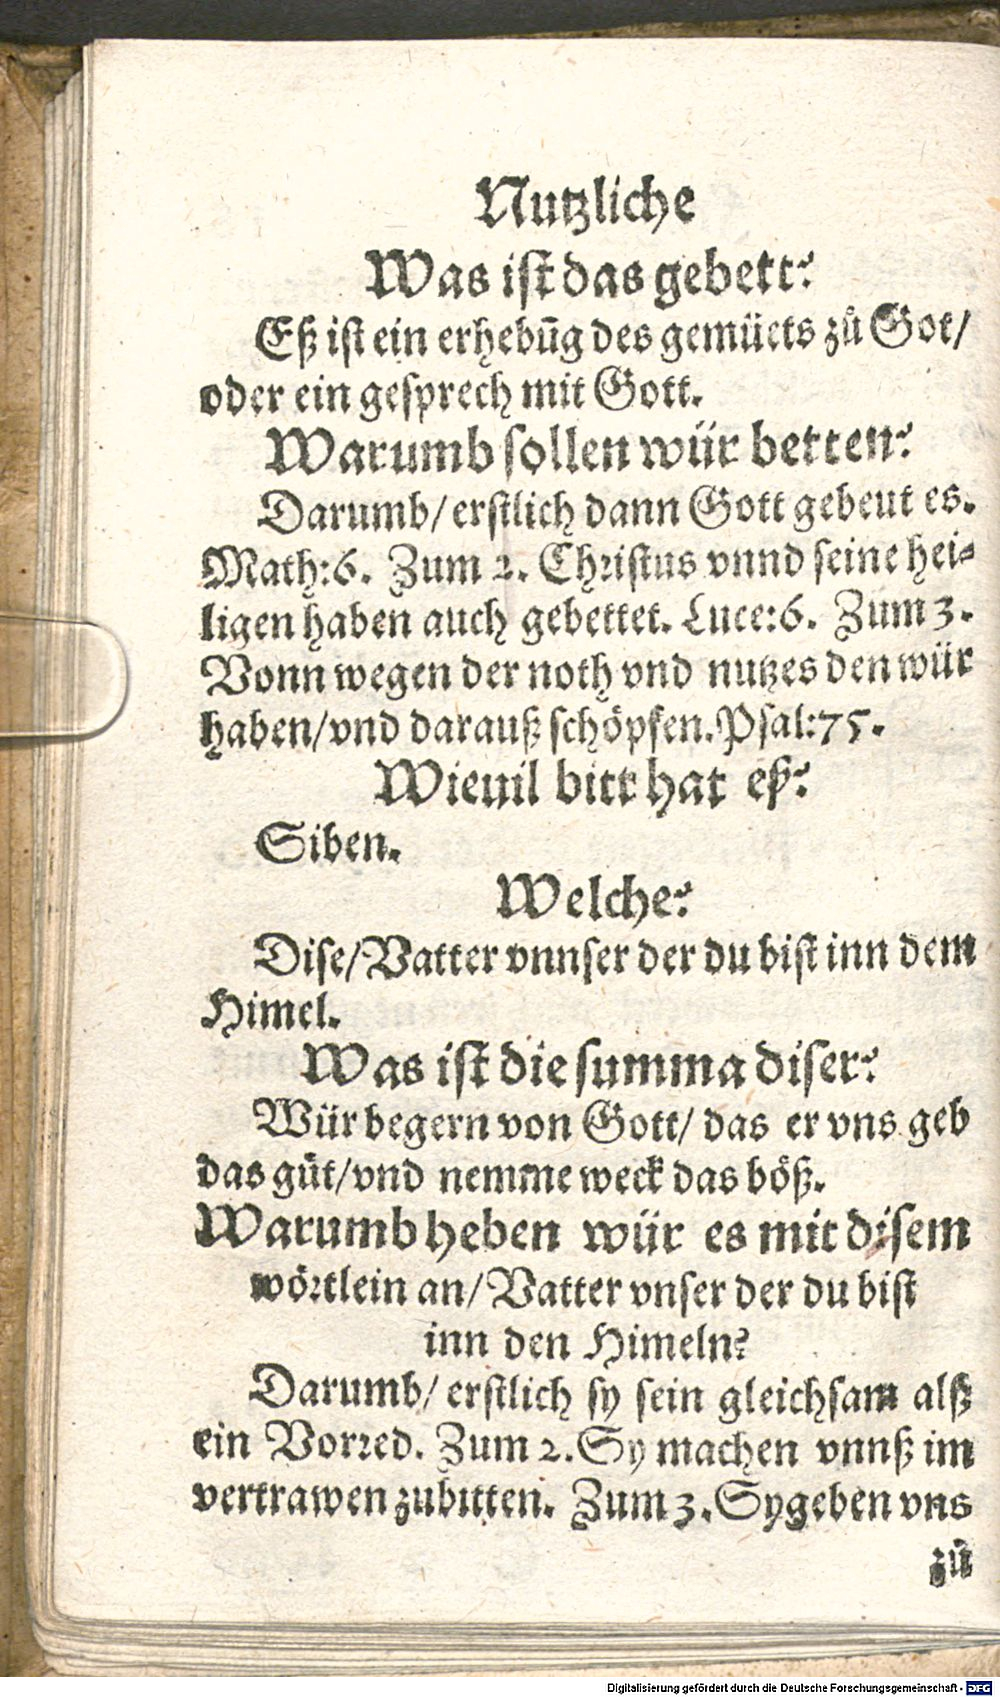 Nutzliche
Was ist das gebett?
Eß ist ein erhebūg des gemüets zů Got/
oder ein gesprech mit Gott.
Warumb sollen wür betten?
Darumb/ erstlich dann Gott gebeut es.
Math:6. Zum 2. Christus vnnd seine hei-
ligen haben auch gebettet. Luce:6. Zum 3.
Vonn wegen der noth vnd nutzes den wür
haben/vnd darauß schöpfen. Psal:75.
Wieuil bitt hat eß?
Siben.
Welche?
Dise/Vatter vnnser der du bist inn dem
Himel.
Was ist die summa diser?
Wür begern von Gott/ das er vns geb
das gůt/vnd nemme weck das böß.
Warumb heben wür es mit disem
wörtlein an/ Vatter vnser der du bist
inn den Himeln?
Darumb/ erstlich sy sein gleichsam alß
ein Vorred. Zum 2. Sy machen vnnß im
vertrawen zubitten. Zum 3. Sygeben vns
zů
Digitalisierung gefördert durch die Deutsche Forschungsgemeinschaft - DFG